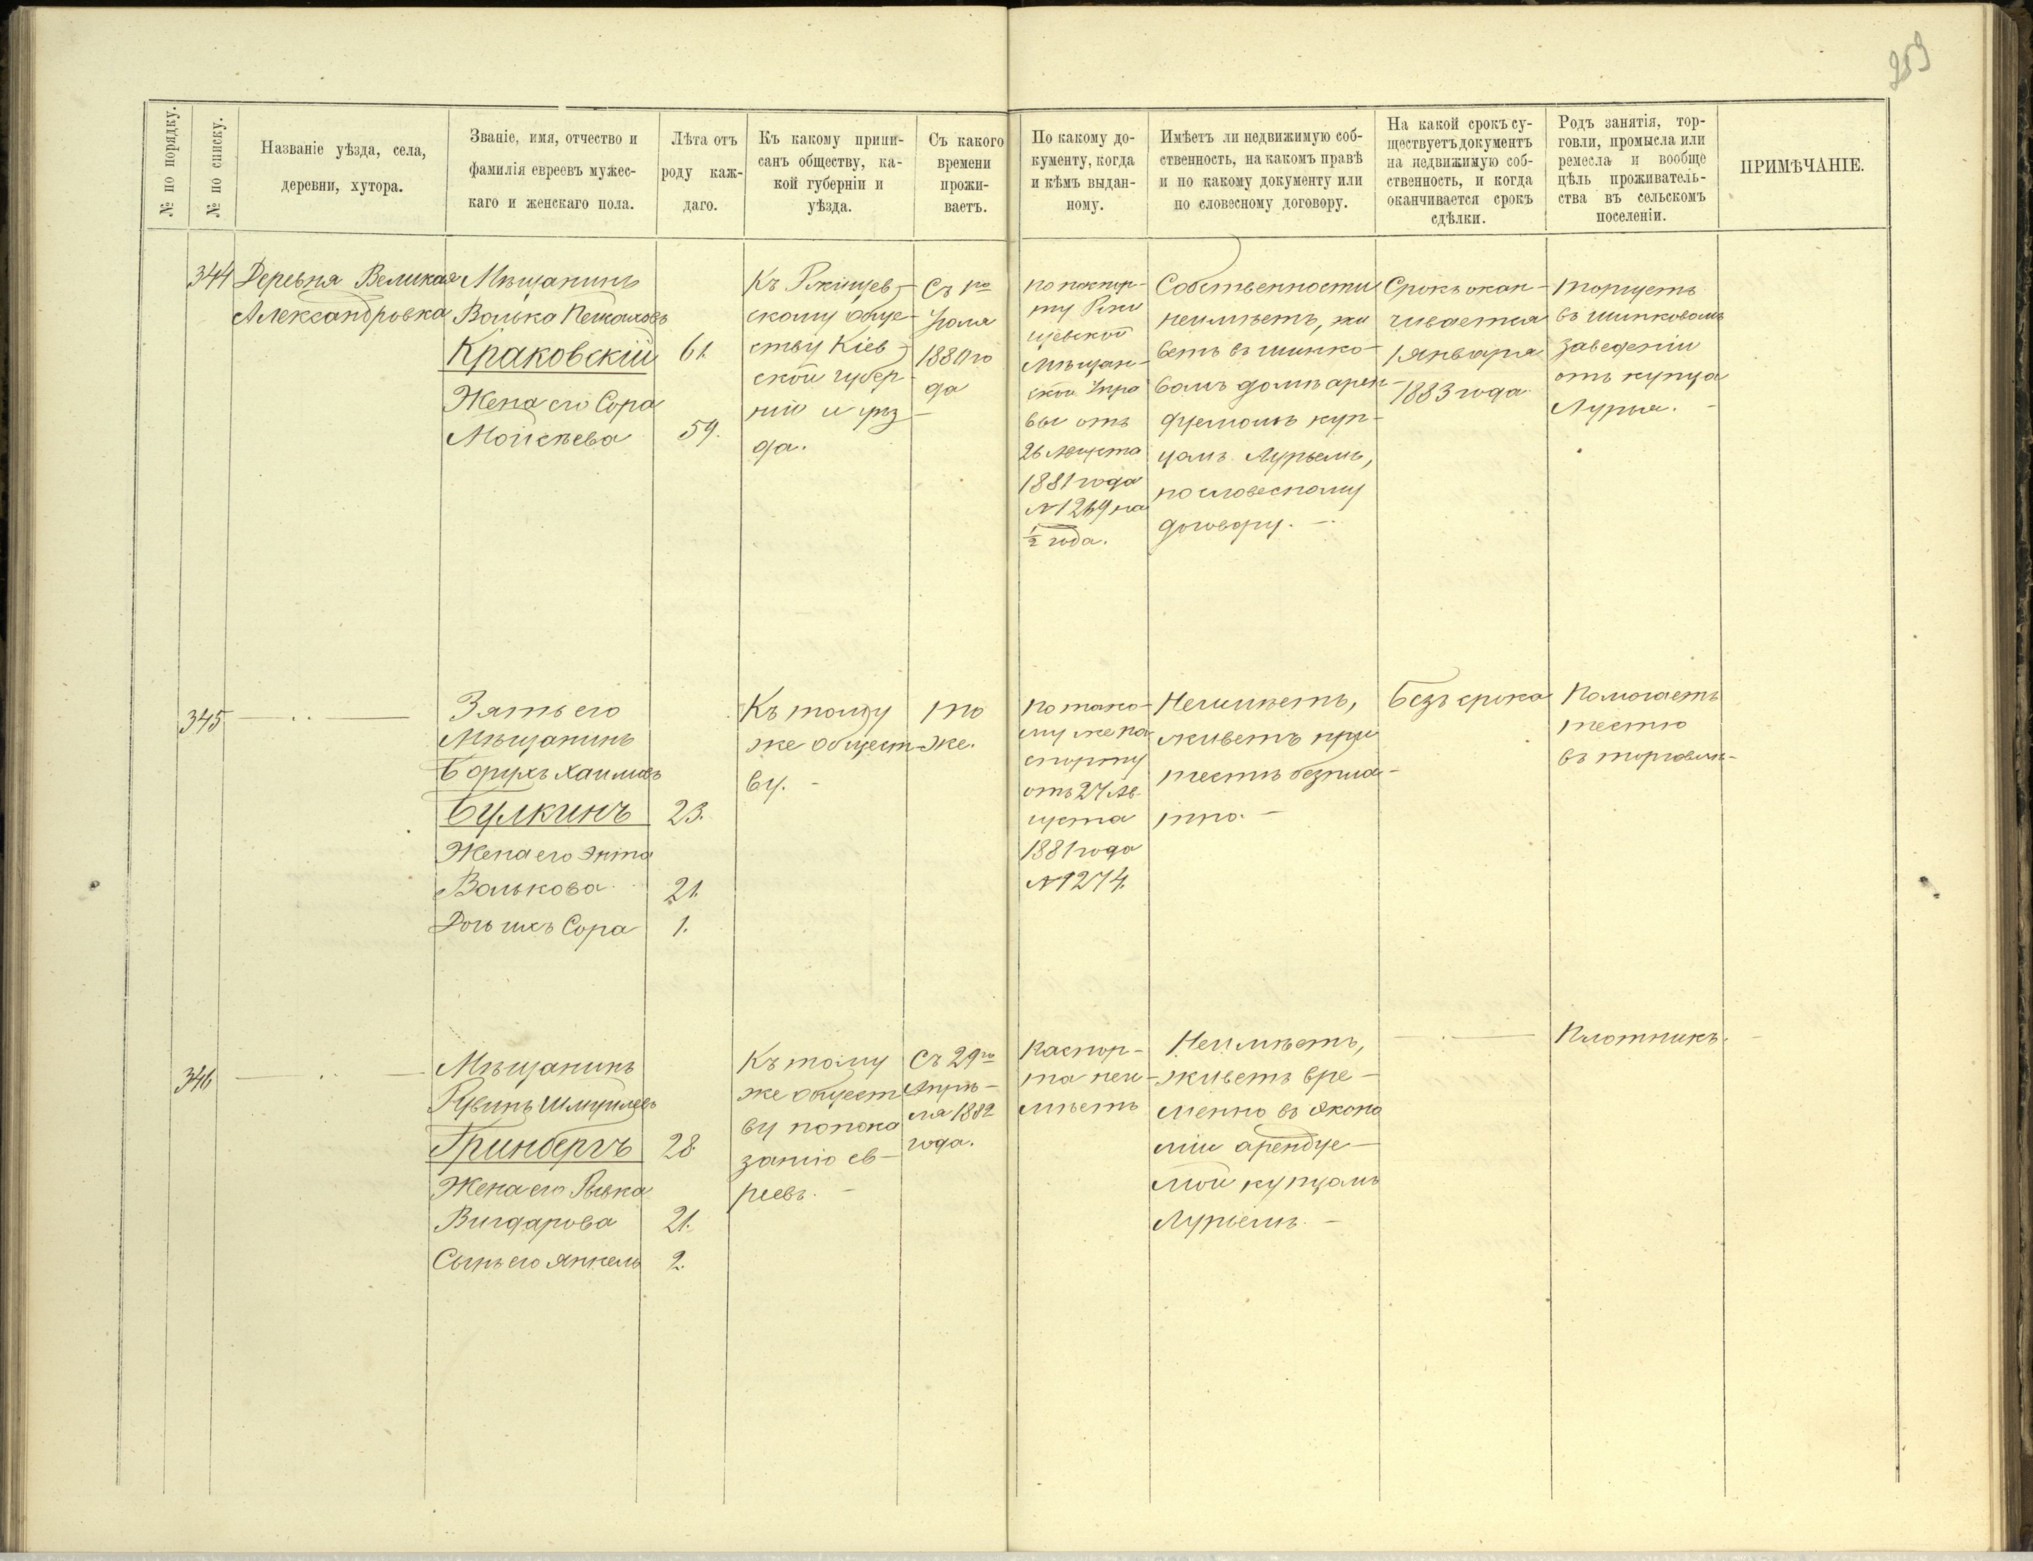 259
№ по порядку.
№ по списку.
Названіе уѣзда, села,
деревни, хутора.
Званіе, имя, отчество и
фамилія евреевъ мужес-
каго и женскаго пола.
Лѣта отъ
роду каж-
даго.
Къ какому припи-
санъ обществу, ка-
кой губерніи и
уѣзда.
Съ какого
времени
прожи-
ваетъ.
По какому до-
кументу, когда
и кѣмъ выдан-
ному.
Имѣетъ ли недвижимую соб-
ственность, на какомъ правѣ
и по какому документу или
по словесному договору.
На какой срокъ су-
ществуетъ документъ
на недвижимую соб-
ственность, и когда
оканчивается срокъ
сдѣлки.
Родъ занятія, тор-
говли, промысла или
ремесла и вообще
цѣль проживатель-
ства въ сельскомъ
поселеніи.
ПРИМѢЧАНІЕ.
344
Деревня Великая
Александровка
Мѣщанинъ
Волько
Краковскій 61.
Жена его Сора
Мойсѣева 59.
Къ Ржищев-
скому обще-
ству Кіев-
ской губер-
ніи и уѣз-
да.
Съ 1го
Іюля
1880 го
да
по паспор-
ту Ржи
щевской
Мѣщан-
ской Упра
вы отъ
26 Августа
1881 года
№ 1269 на
1/2 года.
Собственности
неимѣетъ, жи
ветъ въ шинко-
вомъ домѣ арен-
дуемомъ куп-
цомъ Лурьемъ,
по словесному
договору. —
Срокъ окан-
чивается
1 Января
1883 года
торгуетъ
въ шинковомъ
заведеніи
отъ купца
Лурья. —
345
Зять его
Мѣщанинъ
Борухъ Хаимовъ
Булкинъ 23.
Жена его Энта
Волькова 21.
Дочь ихъ Сора 1.
Къ тому
же общест-
ву. —
то
же.
по тако-
му же па
спорту
отъ 27 Ав-
густа
1881 года
№ 1274.
Неимѣетъ,
живетъ при
тестѣ безпла-
тно. —
Безъ срока
Помогаетъ
тестю
въ торговлѣ-
346
Мѣщанинъ
Рувинъ Шмуилевъ
Гринбергъ 28.
Жена его Рывка
Вигдарова 21.
Сынъ его Янкель 2.
Къ тому
же общест
ву по пока
занію ев-
реевъ. —
Съ 29го
Апрѣ-
ля 1882
года.
Паспор-
та неи-
мѣетъ
Неимѣетъ,
живетъ вре-
менно въ экона
міи арендуе-
мой купцомъ
Лурьемъ. —
Плотникъ. —